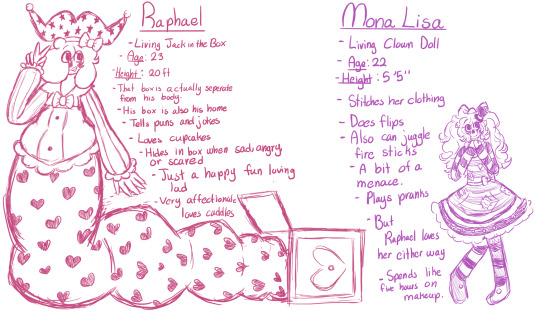 Raphael
- Living Jack in the Box
- Age: 23
- Height: 20ft
- That box is actually seperate
from his body.
- His box is also his home
- Tells puns and jokes
- Loves cupcakes
- Hides in box when sad, angry
or scared
- Just a happy fun loving
lad
- Very affectionate
loves cuddles
Mona Lisa
- Living Clown Doll
- Age: 22
- Height: 5'5"
- Stitches her clothing
- Does flips
- Also can juggle
fire sticks
- A bit of a
menace.
- Plays pranks
- But
Raphael loves
her either way
- Spends like
five hours on
makeup.